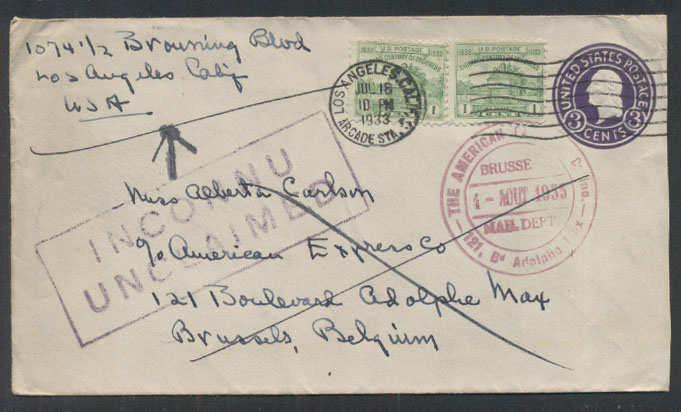 1074 1/2 Browning Blvd
Los Angeles Calif
USA
1833 U.S. POSTAGE 1933
CENTURY OF PROGRESS
1 1
1833 U.S. POSTAGE 1933
CENTURY OF PROGRESS
1 1
UNITED STATES POSTAGE
3 CENTS 3
LOS ANGELES, CALIF.
JUL 16
10 PM
1933
ARCADE STA.
THE AMERICAN
BRUSSE
4 - AOUT 1933
MAIL DEPT
121, Bd Adolphe Max
INCONNU
UNCLAIMED
Miss Alberta Carlson
c/o American Express Co
121 Boulevard Adolphe Max
Brussels, Belgium